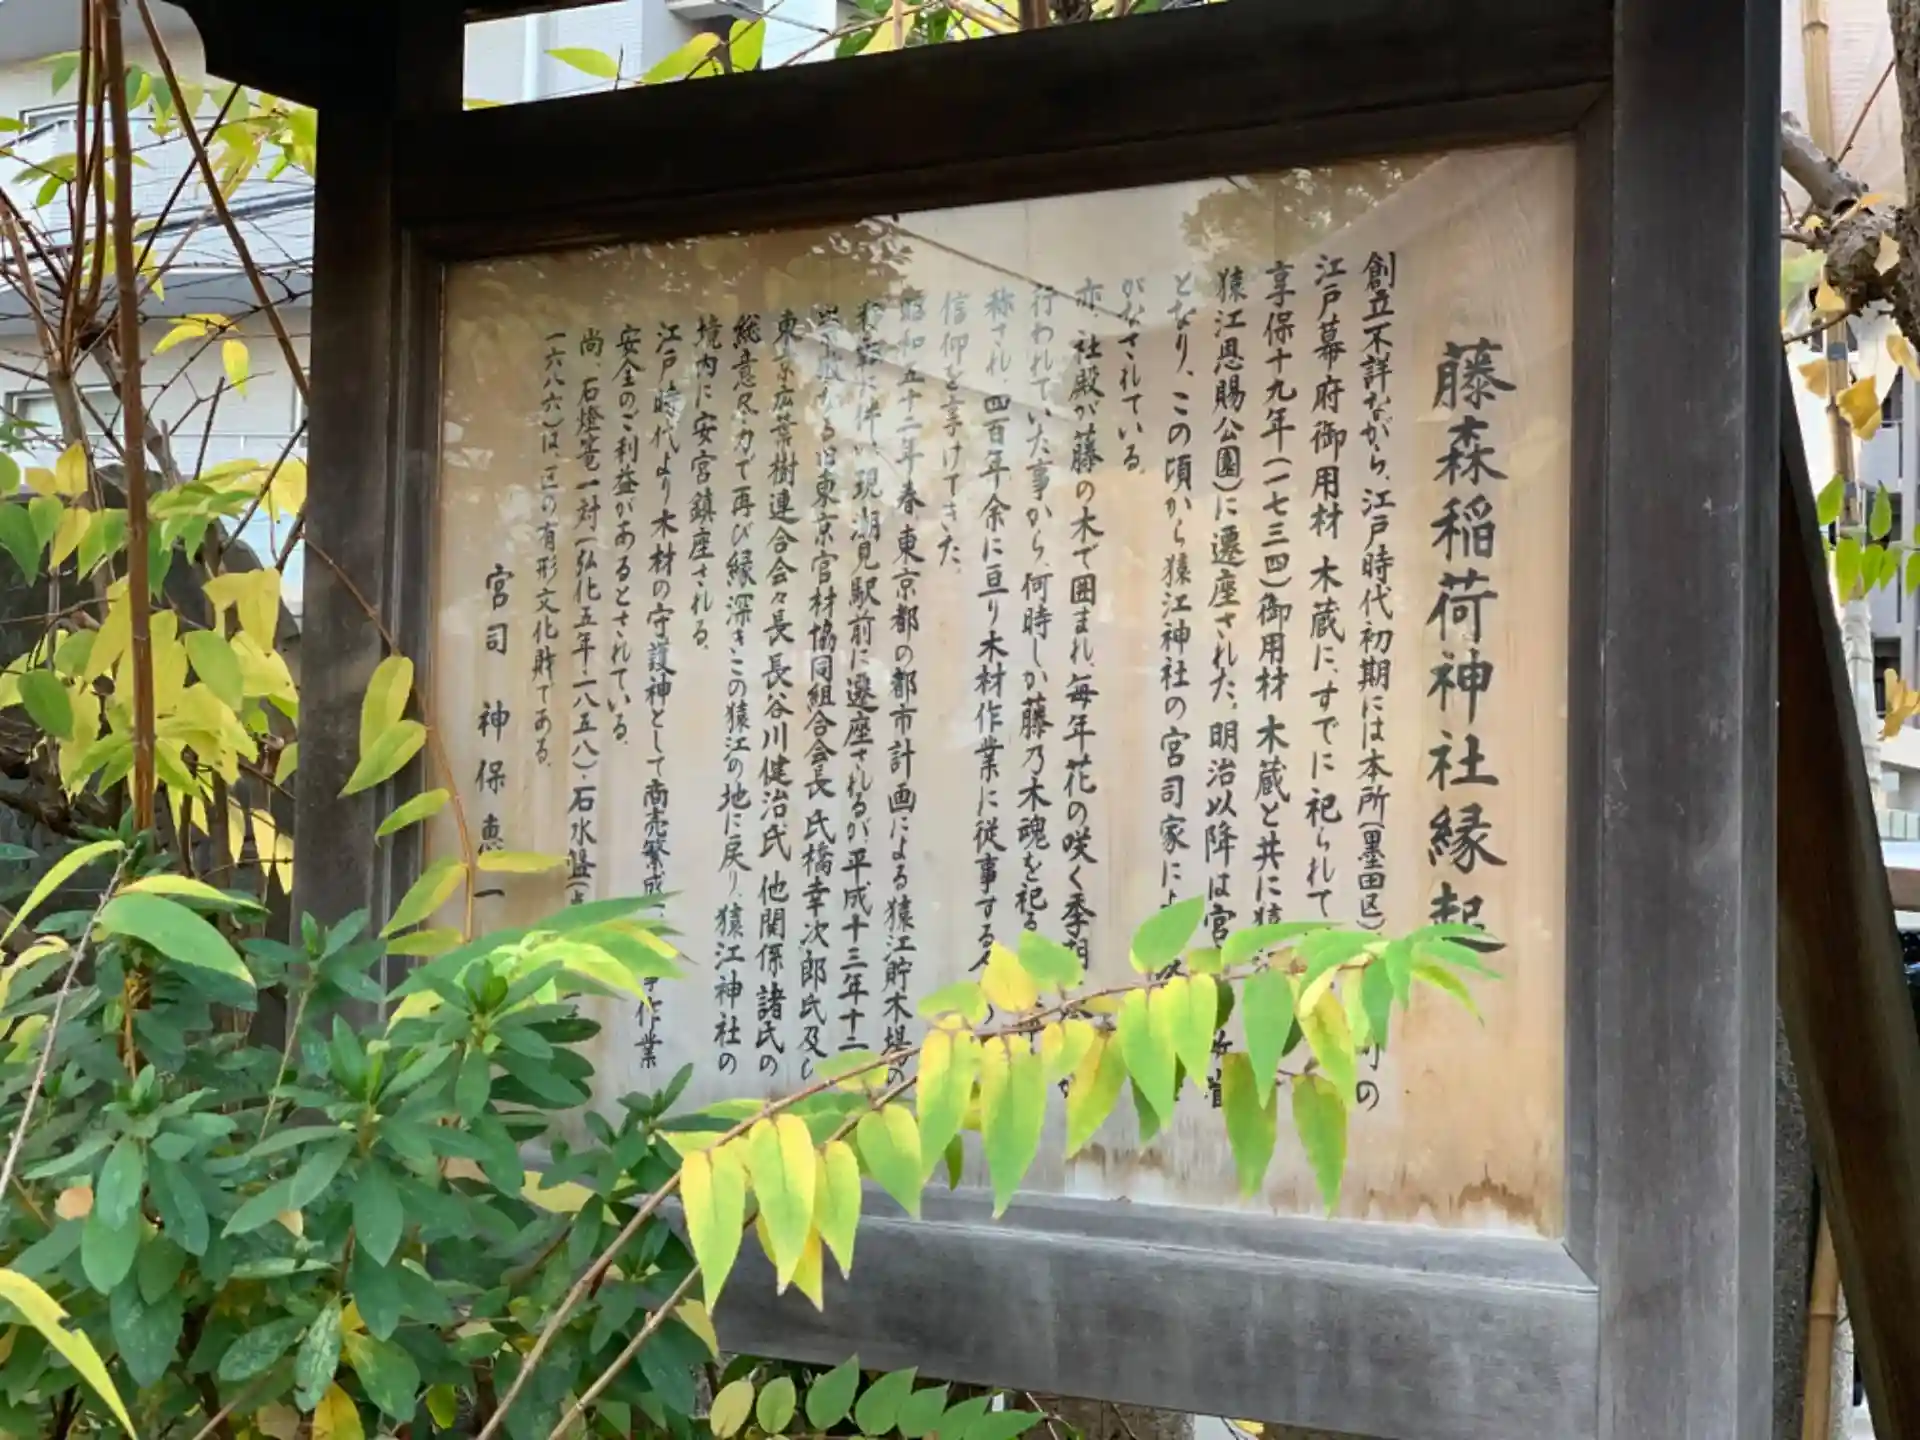 藤森稲荷神社縁起
創立不詳ながら、江戸時代初期には本所(墨田区)町の
江戸幕府御用材木蔵に、すでに祀られて
享保十九年(一七三四)御用材木蔵と共に猿江
猿江恩賜公園)に遷座された。明治以降は宮
となり、この頃から猿江神社の宮司家によ
がなされている。
亦、社殿が藤の木で囲まれ、毎年花の咲く季期
行われていた事から、何時しか藤乃木魂を祀る
称され、四百年余に亘り木材作業に従事する
信仰を享けてきた。
昭和五十二年春、東京都の都市計画による猿江貯木場の
に伴い、現潮見駅前に遷座されるが、平成十三年十二
なる旧東京官材協同組合会長氏橋幸次郎氏及び
東京広葉樹連合会々長長谷川健治氏、他関係諸氏の
総意尽力で再び縁深きこの猿江の地に戻り、猿江神社の
境内に安宮鎮座される。
江戸時代より木材の守護神として商売繁成、作業
安全のご利益があるとされている。
尚、石燈篭一対(弘化五年・一八五八)・石水盤(
一六八六)は、区の有形文化財である。
宮司 神保恵一